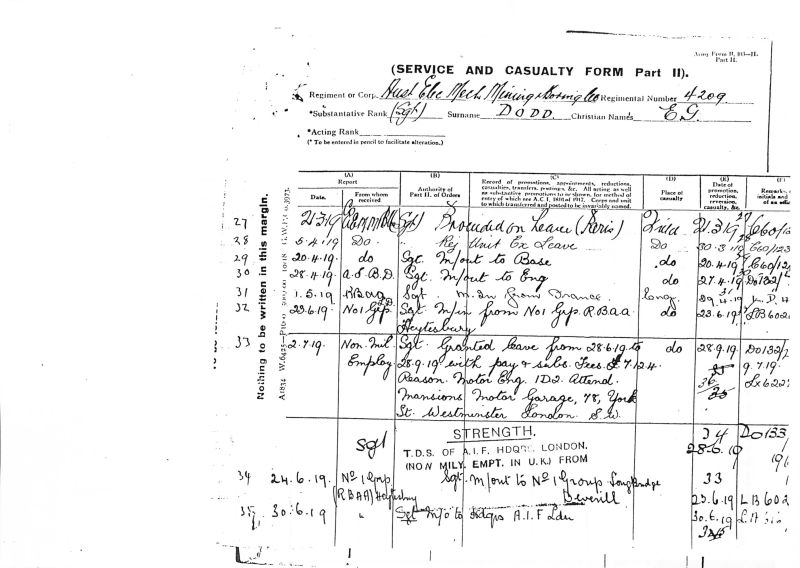 Army Form B. 103—II.
Part II.
(SERVICE AND CASUALTY FORM Part II).
Regiment or Corp. Aust Elec Mech Mining & Boring Co Regimental Number 4209
*Substantative Rank (Sgt) Surname DODD Christian Names E.G.
*Acting Rank
(* To be entered in pencil to facilitate alteration.)
Nothing to be written in this margin.
(A) Report
Date. From whom received
(B) Authority of Part II. of Orders
(C) Record of promotions, appointments, reductions, casualties, transfers, postings, &c. All acting as well as substantive promotions to be shown, for method of entry of which see A.C.I. 1816 of 1917. Corps and unit to which transferred and posted to be invariably named.
(D) Place of casualty
(E) Date of promotion, reduction, reversion, casualty, &c.
Remarks
initials and
of an offi
27 21.3.19 Sgt Proceeded on Leave (Paris) Field 21.3.19 C60/12
28 5.4.19 Do. " Rej Unit Ex Leave Do 30.3.19 C60/123
29 20.4.19 do Sgt. M/out to Base do 20.4.19 C60/12
30 28.4.19 A.S.B.D. Sgt. M/out to Eng do 27.4.19 Do132/
31 1.5.19 Sgt. M.In from France. Eng. 29.4.19 L.D.H
32 23.6.19 No 1 Grp. Sgt M/in from No1 Grp. R.B.A.A. do 23.6.19 LB602
Heytesbury
33 2.7.19 Non. Mil Sgt. Granted leave from 28.6.19 to do 28.9.19 Do132/
Employ 28.9.19 with pay & subs. Fees £7.12.4. 9.7.19
Reason. Motor Eng. 1D2. Attend. 36 Lx622
Mansions Motor Garage, 78, York
St. Westminster London. S.W.
STRENGTH. 34 Do133
Sgt T.D.S. OF A.I.F. HDQRS. LONDON. 28.6.19
(NON MILY. EMPT. IN U.K.) FROM
34 24.6.19. No 1 Grp Sgt. M/out to No 1 Group Longbridge 33
(RBAA) Heytesbury Deverill 23.6.19 LB602
35 30.6.19 " Sgt M/o to Hdqrs A.I.F Ldn 30.6.19